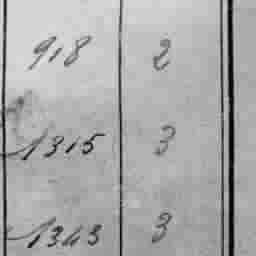 918 2
1315 3
1343 3